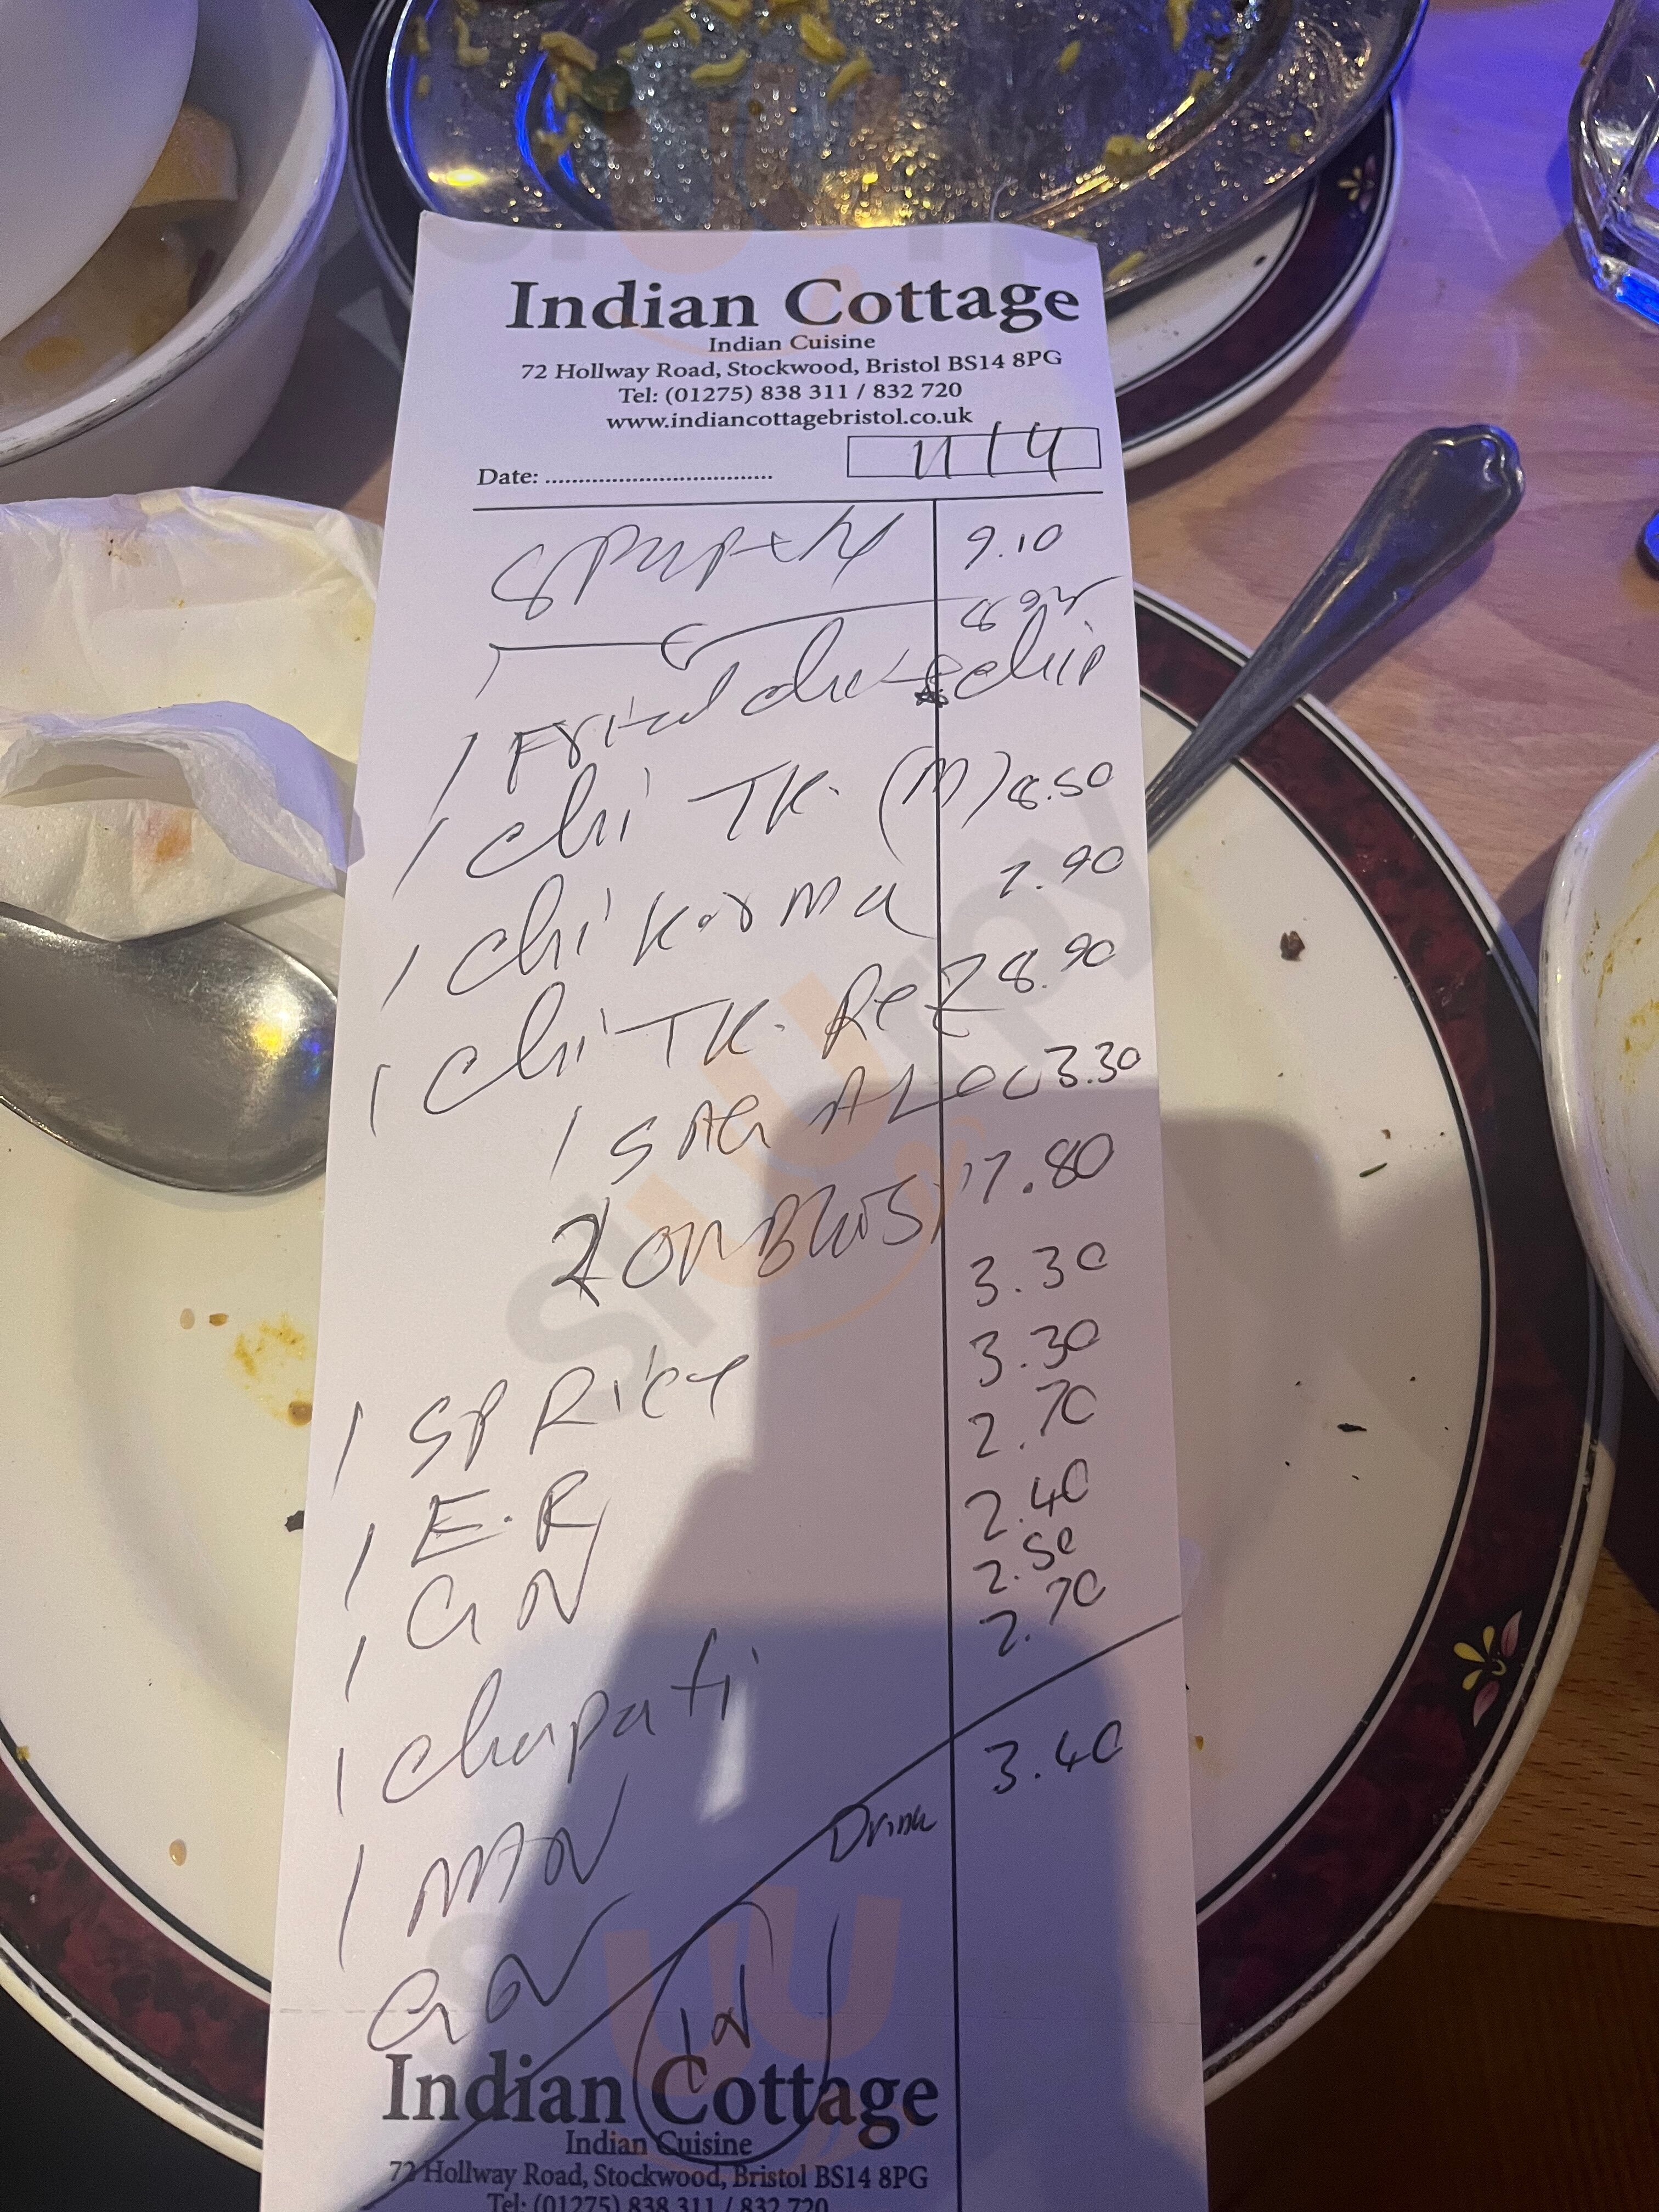 Indian Cottage
Indian Cuisine
72 Hollway Road, Stockwood, Bristol BS14 8PG
Tel: (01275) 838 311 / 832 720
www.indiancottagebristol.co.uk
Date: ................................
9.10
1 Fried chip
1 Chi TK. (M) 8.50
1 Chi Korma 7.90
1 Chi TK. Rez 8.90
1 SAG ALOO 3.30
17.80
1 SP Rice 3.30
1 E.R 3.30
1 GN 2.70
1 Chapati 2.40
1 MN 2.50
GN 2.70
Drink 3.40
Indian Cottage
Indian Cuisine
72 Hollway Road, Stockwood, Bristol BS14 8PG
Tel: (01275) 838 311 / 832 720
slurpy